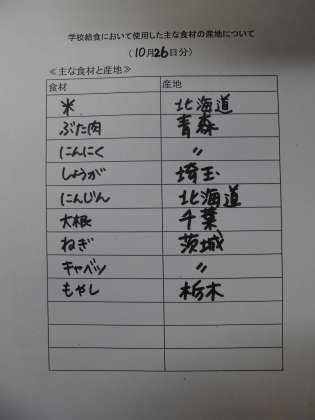 学校給食において使用した主な食材の産地について
(10月26日分)
≪主な食材と産地≫
食材 産地
米 北海道
ぶた肉 青森
にんにく 〃
しょうが 埼玉
にんじん 北海道
大根 千葉
ねぎ 茨城
キャベツ 〃
もやし 栃木